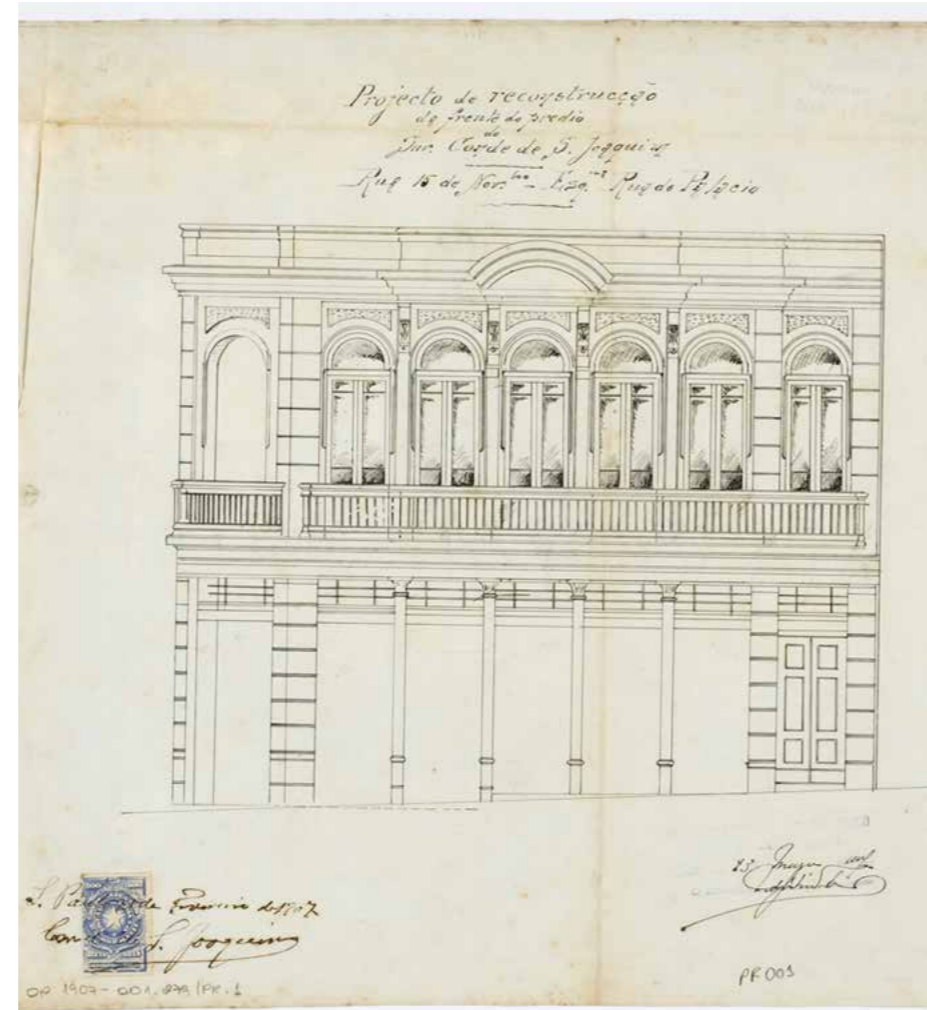 Projecto de reconstrucção
da frente do predio
do
Snr. Conde de S. Joaquim
Rua 15 de Nov.bro - Esq. Rua do Palacio
S. Paulo de de 1907
Conde de S. Joaquim
OP 1907 - 001.879 / PR.1
PR 001